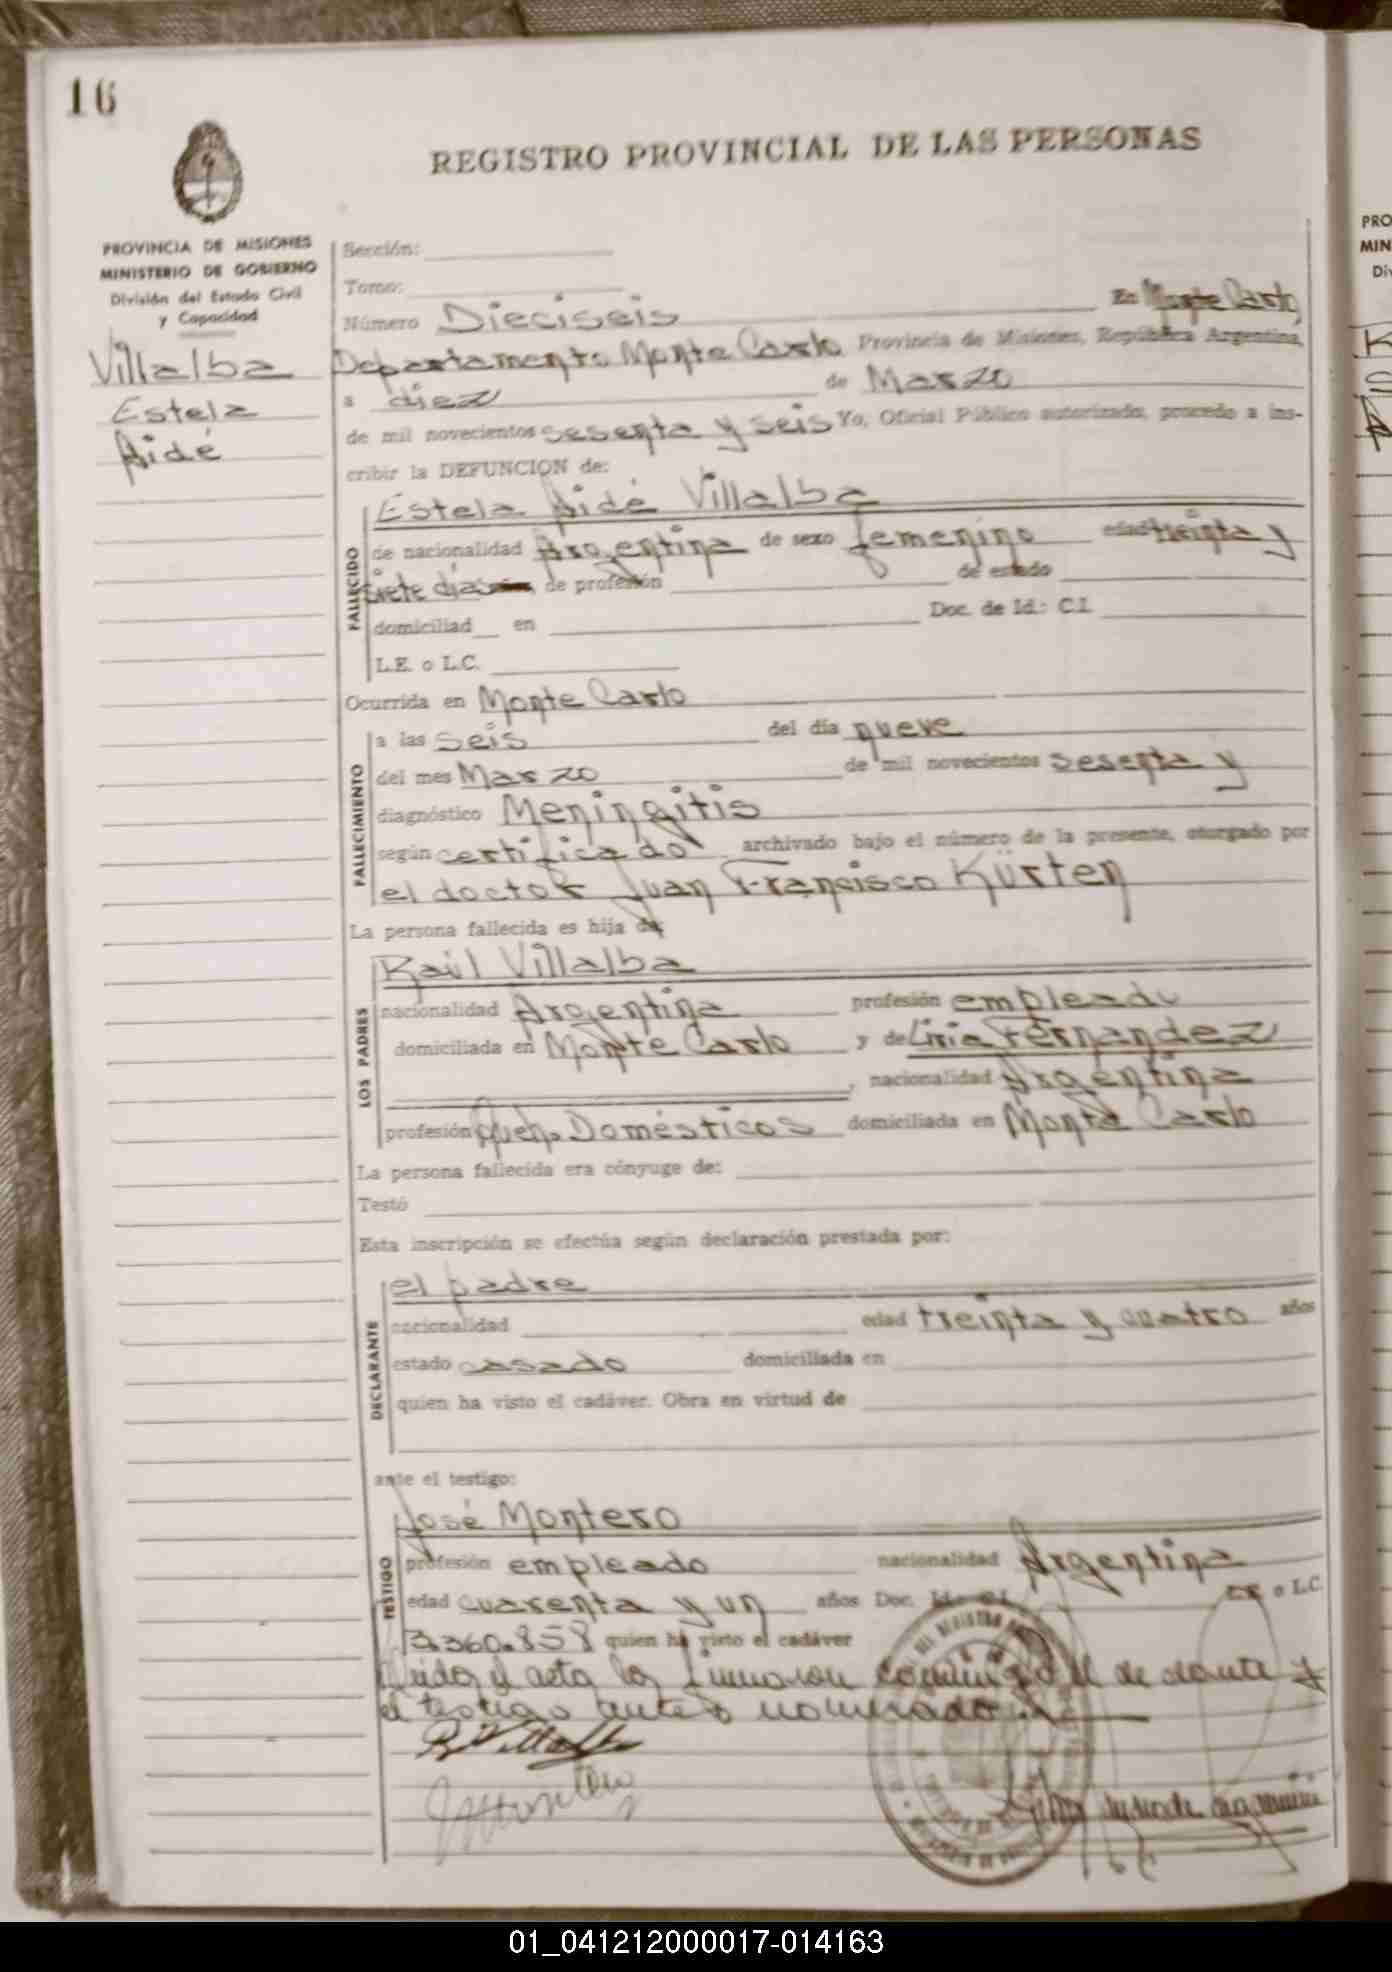 16
REGISTRO PROVINCIAL DE LAS PERSONAS
PROVINCIA DE MISIONES
MINISTERIO DE GOBIERNO
División del Estado Civil
y Capacidad
Villalba
Estela
Aidé
Sección:
Tomo:
Número Dieciseis En Monte Carlo,
Departamento Monte Carlo Provincia de Misiones, República Argentina,
a diez de Marzo
de mil novecientos sesenta y seis Yo, Oficial Público autorizado, procedo a ins-
cribir la DEFUNCION de:
FALLECIDO
Estela Aidé Villalba
de nacionalidad Argentina de sexo femenino edad treinta y
siete días de profesión de estado
domiciliad en Doc. de Id.: C.I.
L.E. o L.C.
Ocurrida en Monte Carlo
FALLECIMIENTO
a las seis del día nueve
del mes Marzo de mil novecientos sesenta y
diagnóstico Meningitis
según certificado archivado bajo el número de la presente, otorgado por
el doctor Juan Francisco Kürten
La persona fallecida es hija de
LOS PADRES
Raúl Villalba
nacionalidad Argentina profesión empleado
domiciliada en Monte Carlo y de Liria Fernandez
, nacionalidad Argentina
profesión Queh. Domésticos domiciliada en Monte Carlo
La persona fallecida era cónyuge de:
Testó
Esta inscripción se efectúa según declaración prestada por:
DECLARANTE
el padre
nacionalidad edad treinta y cuatro años
estado casado domiciliada en
quien ha visto el cadáver. Obra en virtud de
ante el testigo:
TESTIGO
José Montero
profesión empleado nacionalidad Argentina
edad cuarenta y un años Doc. Id.: C.I. L.E. o L.C.
3.360.858 quien ha visto el cadáver
Leida el acta la firmaron conmigo el declarante y
el testigo antes nombrado.
R. Villalba
PRO
MIN
Div
01_041212000017-014163